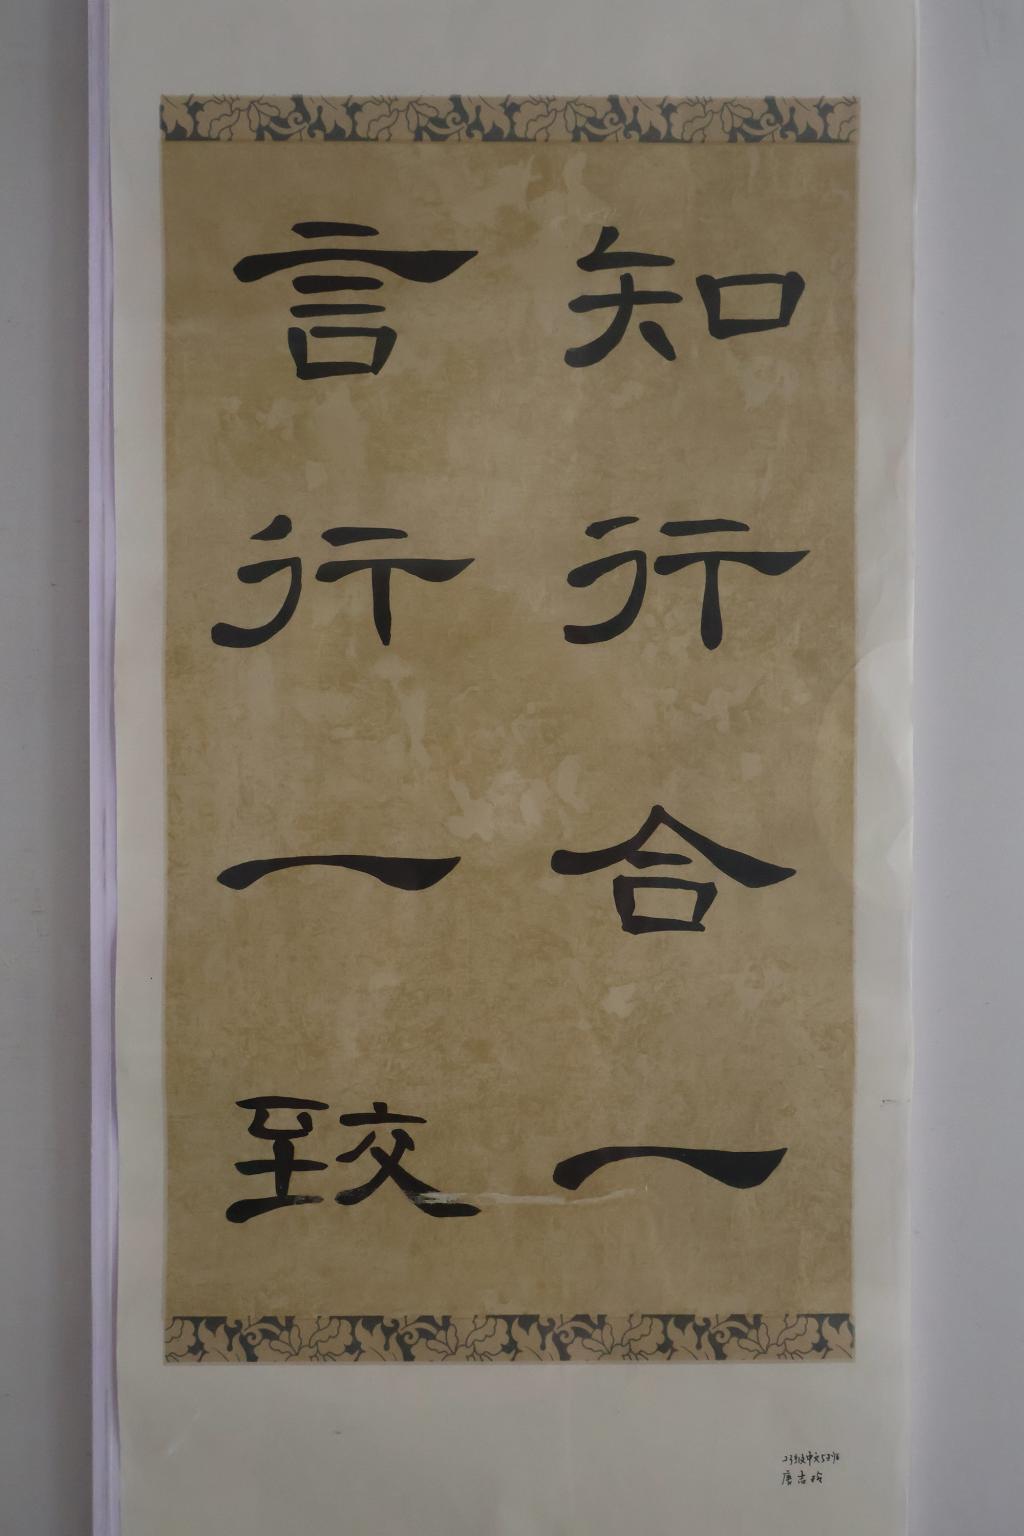 知行合一
言行一致
23级中文5班
唐志玲